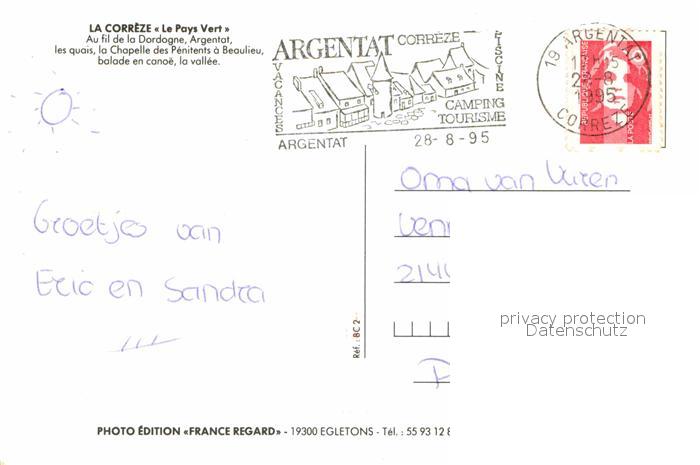 LA CORRÈZE « Le Pays Vert »
Au fil de la Dordogne, Argentat,
les quais, la Chapelle des Pénitents à Beaulieu,
balade en canoë, la vallée.
ARGENTAT CORRÈZE
VACANCES
PISCINE
CAMPING
TOURISME
ARGENTAT
28-8-95
19 ARGENTAT
28-8
1995
CORREZE
RÉPUBLIQUE FRANÇAISE
LA POSTE
Oma van Vuren
Groetjes van
Eric en Sandra
Réf. : BC 2
privacy protection
Datenschutz
PHOTO ÉDITION «FRANCE REGARD» - 19300 EGLETONS - Tél. : 55 93 12 8